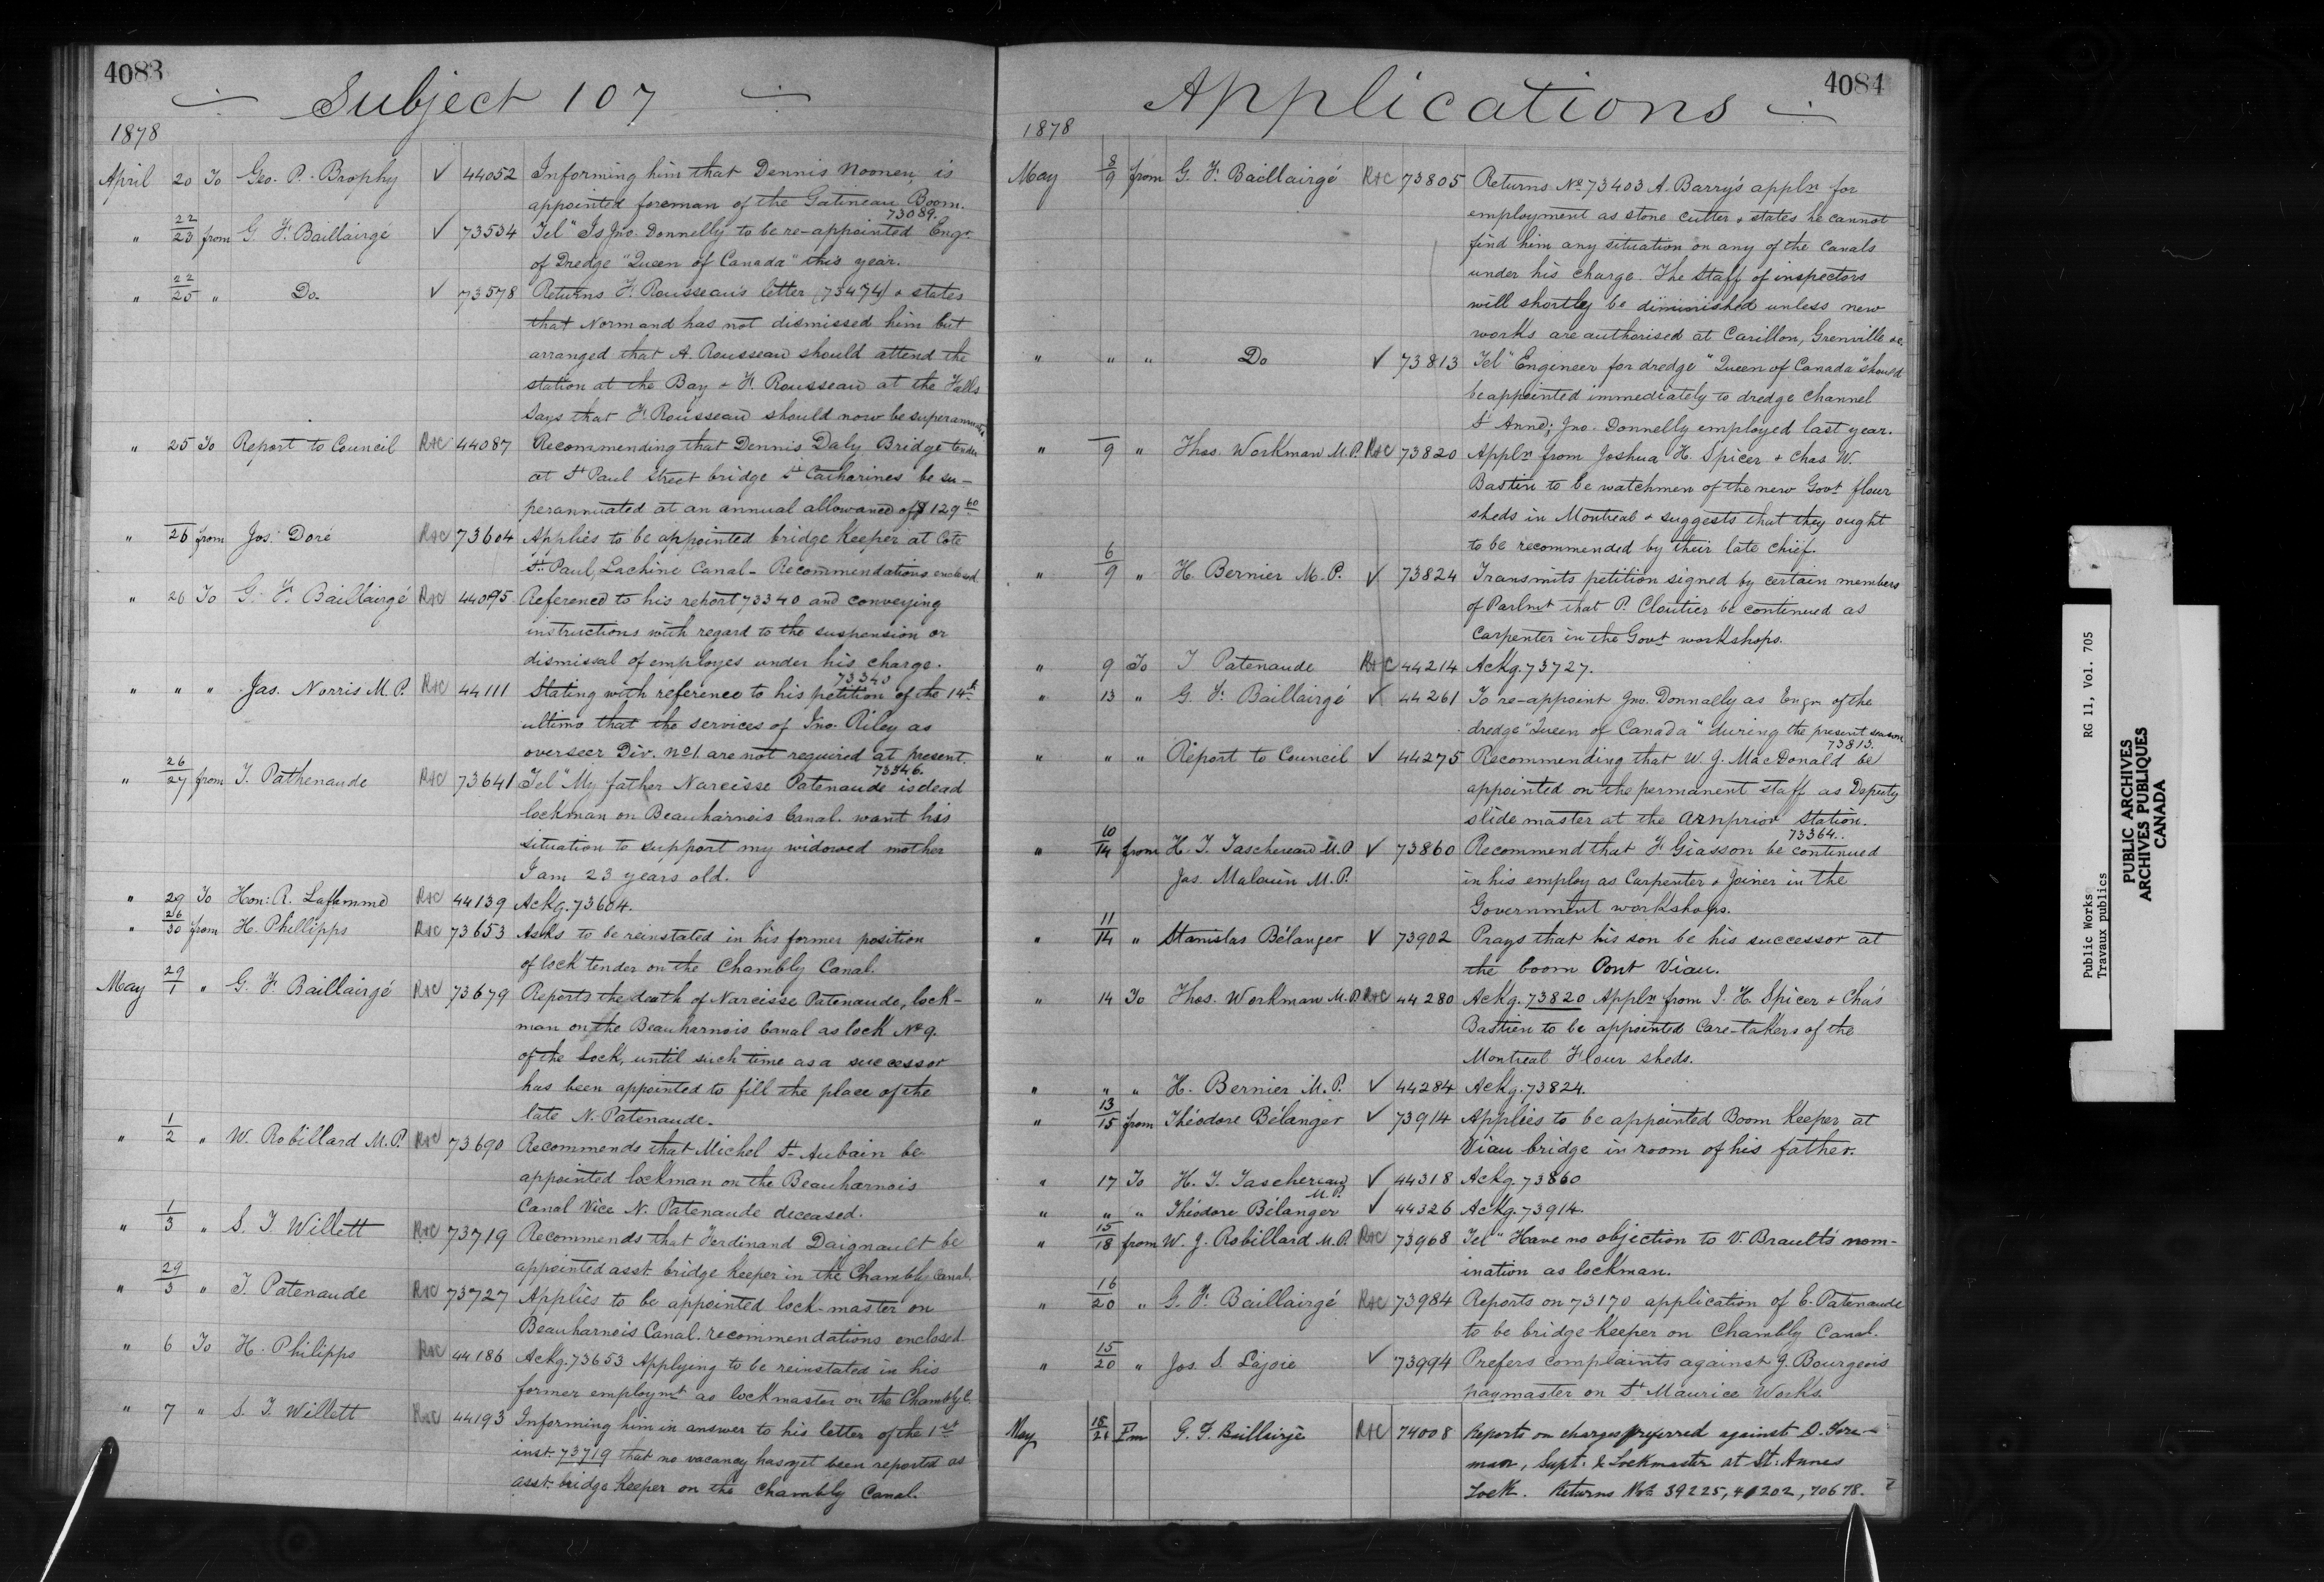 4083
Subject 107
1878
April 20 To Geo. P. Brophy ✓ 44052 Informing him that Dennis Noonen, is
appointed foreman of the Gatineau Boom.
73089.
" 22/23 from G. F. Baillairgé ✓ 73534 Tel " Is Jno. Donnelly to be re-appointed Engr.
of Dredge "Queen of Canada" this year.
" 22/25 " Do. ✓ 73578 Returns F. Rousseau's letter (73474) & states
that Normand has not dismissed him but
arranged that A. Rousseau should attend the
station at the Bay & F. Rousseau at the Falls
Says that F. Rousseau should now be superannuated
" 25 To Report to Council R&C 44087 Recommending that Dennis Daly Bridge tender
at St Paul Street bridge St Catharines be su-
perannuated at an annual allowance of $129 60
" 26 from Jos. Doré R&C 73604 Applies to be appointed bridge keeper at Cote
St. Paul, Lachine Canal - Recommendations enclosed
" 26 To G. F. Baillairgé R&C 44095 Referened to his report 73340 and conveying
instructions with regard to the suspension or
dismissal of employes under his charge.
73343
" " " Jas. Norris M.P. R&C 44111 Stating with reference to his petition of the 14th
ultimo that the services of Jno. Riley as
overseer Div. No 1. are not required at present.
73346.
" 26/27 from T. Pathenaude R&C 73641 Tel " My father Narcisse Patenaude is dead
lockman on Beauharnois Canal. want his
situation to support my widowed mother
I am 23 years old.
" 29 To Hon: R. Laflamme R&C 44139 Ackg. 73604.
" 26/30 from H. Phillipps R&C 73653 Asks to be reinstated in his former position
of lock tender on the Chambly Canal.
May 29/1 " G. F. Baillairgé R&C 73679 Reports the death of Narcisse Patenaude, lock-
man on the Beauharnois Canal as lock No 9.
of the Lock, until such time as a successor
has been appointed to fill the place of the
late N. Patenaude.
" 1/2 " W. Robillard M.P. R&C 73690 Recommends that Michel St Aubain be
appointed lockman on the Beauharnois
Canal Vice N. Patenaude deceased.
" 1/3 " S. T. Willett R&C 73719 Recommends that Ferdinand Daignault be
appointed asst. bridge keeper in the Chambly Canal.
" 29/3 " T. Patenaude R&C 73727 Applies to be appointed lock-master on
Beauharnois Canal. recommendations enclosed
" 6 To H. Philipps R&C 44186 Ackg. 73653 Applying to be reinstated in his
former employmt as lockmaster on the Chambly C.
" 7 " S. T. Willett R&C 44193 Informing him in answer to his letter of the 1st
inst. 73719 that no vacancy has yet been reported as
asst. bridge keeper on the Chambly Canal.
4084
Applications
1878
May 8/9 from G. F. Baillairgé R&C 73805 Returns No 73403 A. Barry's appln for
employment as stone cutter & states he cannot
find him any situation on any of the Canals
under his charge. The Staff of inspectors
will shortly be diminished unless new
works are authorised at Carillon, Grenville &c
" " " Do ✓ 73813 Tel " Engineer for dredge "Queen of Canada" should
be appointed immediately to dredge channel
St Anne; Jno. Donnelly employed last year.
" 9 " Thos. Workman M.P. R&C 73820 Appln from Joshua H. Spicer & Chas W.
Bastien to be watchmen of the new Govt flour
sheds in Montreal & suggests that they ought
to be recommended by their late chief.
" 6/9 " H. Bernier M.P. ✓ 73824 Transmits petition signed by certain members
of Parlmt that P. Cloutier be continued as
Carpenter in the Govt workshops.
" 9 To T. Patenaude R&C 44214 Ackg. 73727.
" 13 " G. F. Baillairgé ✓ 44261 To re-appoint Jno. Donnally as Engr of the
dredge "Queen of Canada" during the present season
73813.
" " " Report to Council ✓ 44275 Recommending that W. J. MacDonald be
appointed on the permanent staff as Deputy
slide master at the Arnprior Station.
73364.
" 10/14 from H. T. Taschereau M.P. ✓ 73860 Recommend that F. Giasson be continued
Jas. Malouin M.P. in his employ as Carpenter & Joiner in the
Government workshops.
" 11/14 " Stanislas Bélanger ✓ 73902 Prays that his son be his successor at
the boom Pont Viau.
" 14 To Thos. Workman M.P. R&C 44280 Ackg. 73820 Appln from J. H. Spicer & Chas
Bastien to be appointed Care-takers of the
Montreal Flour sheds.
" " " H. Bernier M.P. ✓ 44284 Ackg. 73824.
" 13/15 from Théodore Bélanger ✓ 73914 Applies to be appointed Boom Keeper at
Viau bridge in room of his father.
" 17 To H. T. Taschereau M.P. ✓ 44318 Ackg. 73860
" " " Théodore Bélanger ✓ 44326 Ackg. 73914.
" 15/18 from W. J. Robillard M.P. R&C 73968 Tel " Have no objection to V. Brault's nom-
ination as lockman.
" 16/20 " G. F. Baillairgé R&C 73984 Reports on 73170 application of E. Patenaude
to be bridge keeper on Chambly Canal.
" 15/20 " Jos. S. Lajoie ✓ 73994 Prefers complaints against J. Bourgeois
paymaster on St Maurice Works.
May 18/21 Fm G. F. Baillairgé R&C 74008 Reports on charges preferred against D. Fore-
man, Supt. & Lockmaster at St. Annes
Lock. Returns Nos 39225, 41202, 70678.
Public Works RG 11, Vol. 705
Travaux publics
PUBLIC ARCHIVES
ARCHIVES PUBLIQUES
CANADA